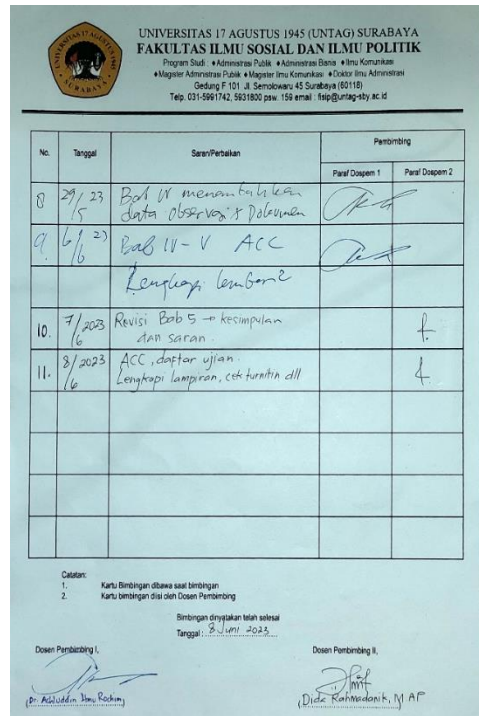 UNIVERSITAS 17 AGUSTUS 1945 (UNTAG) SURABAYA
FAKULTAS ILMU SOSIAL DAN ILMU POLITIK
Program Studi : ♦Administrasi Publik ♦Administrasi Bisnis ♦Ilmu Komunikasi
♦Magister Administrasi Publik ♦Magister Ilmu Komunikasi ♦Doktor Ilmu Administrasi
Gedung F 101 Jl. Semolowaru 45 Surabaya (60118)
Telp. 031-5991742, 5931800 psw. 159 email : fisip@untag-sby.ac.id
No. Tanggal Saran/Perbaikan Pembimbing
Paraf Dospem 1 Paraf Dospem 2
8 29/5 23 Bab IV menambahkan
data observasi & Dokumen
9. 6/6 23 Bab IV - V ACC
Lengkapi lembar2
10. 7/6 2023 Revisi Bab 5 → kesimpulan
dan saran.
11. 8/6 2023 ACC, daftar ujian.
Lengkapi lampiran, cek turnitin dll
Catatan:
1. Kartu Bimbingan dibawa saat bimbingan
2. Kartu bimbingan diisi oleh Dosen Pembimbing
Bimbingan dinyatakan telah selesai
Tanggal : 8 Juni 2023
Dosen Pembimbing I, Dosen Pembimbing II,
(Dr. Achluddin Ibnu Rochim) (Dida Rahmadanik, M AP